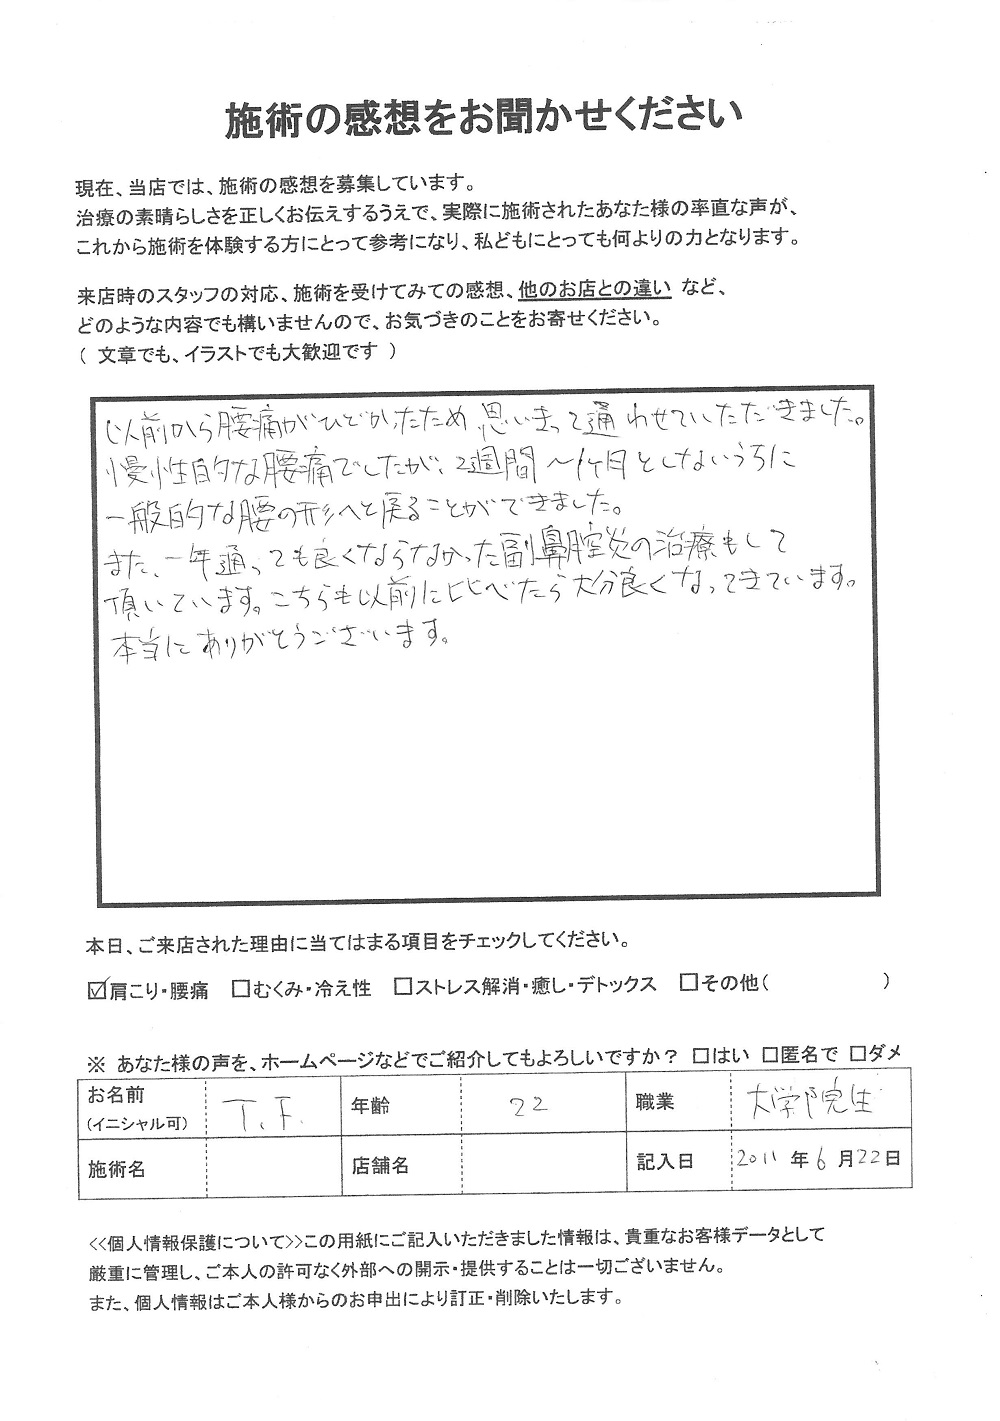 施術の感想をお聞かせください
現在、当店では、施術の感想を募集しています。
治療の素晴らしさを正しくお伝えするうえで、実際に施術されたあなた様の率直な声が、
これから施術を体験する方にとって参考になり、私どもにとっても何よりの力となります。
来店時のスタッフの対応、施術を受けてみての感想、他のお店との違い など、
どのような内容でも構いませんので、お気づきのことをお寄せください。
( 文章でも、イラストでも大歓迎です )
以前から腰痛がひどかったため、思いきって通わせていただきました。
慢性的な腰痛でしたが、2週間〜1ヶ月としないうちに
一般的な腰の形へと戻ることができました。
また、一年通っても良くならなかった副鼻腔炎の治療もして
頂いています。こちらも以前に比べたら大分良くなってきています。
本当にありがとうございます。
本日、ご来店された理由に当てはまる項目をチェックしてください。
☑肩こり・腰痛 □むくみ・冷え性 □ストレス解消・癒し・デトックス □その他( )
※ あなた様の声を、ホームページなどでご紹介してもよろしいですか? □はい □匿名で □ダメ
お名前 (イニシャル可) T.F. 年齢 22 職業 大学院生
施術名 店舗名 記入日 2011 年 6 月 22 日
<<個人情報保護について>>この用紙にご記入いただきました情報は、貴重なお客様データとして
厳重に管理し、ご本人の許可なく外部への開示・提供することは一切ございません。
また、個人情報はご本人様からのお申出により訂正・削除いたします。